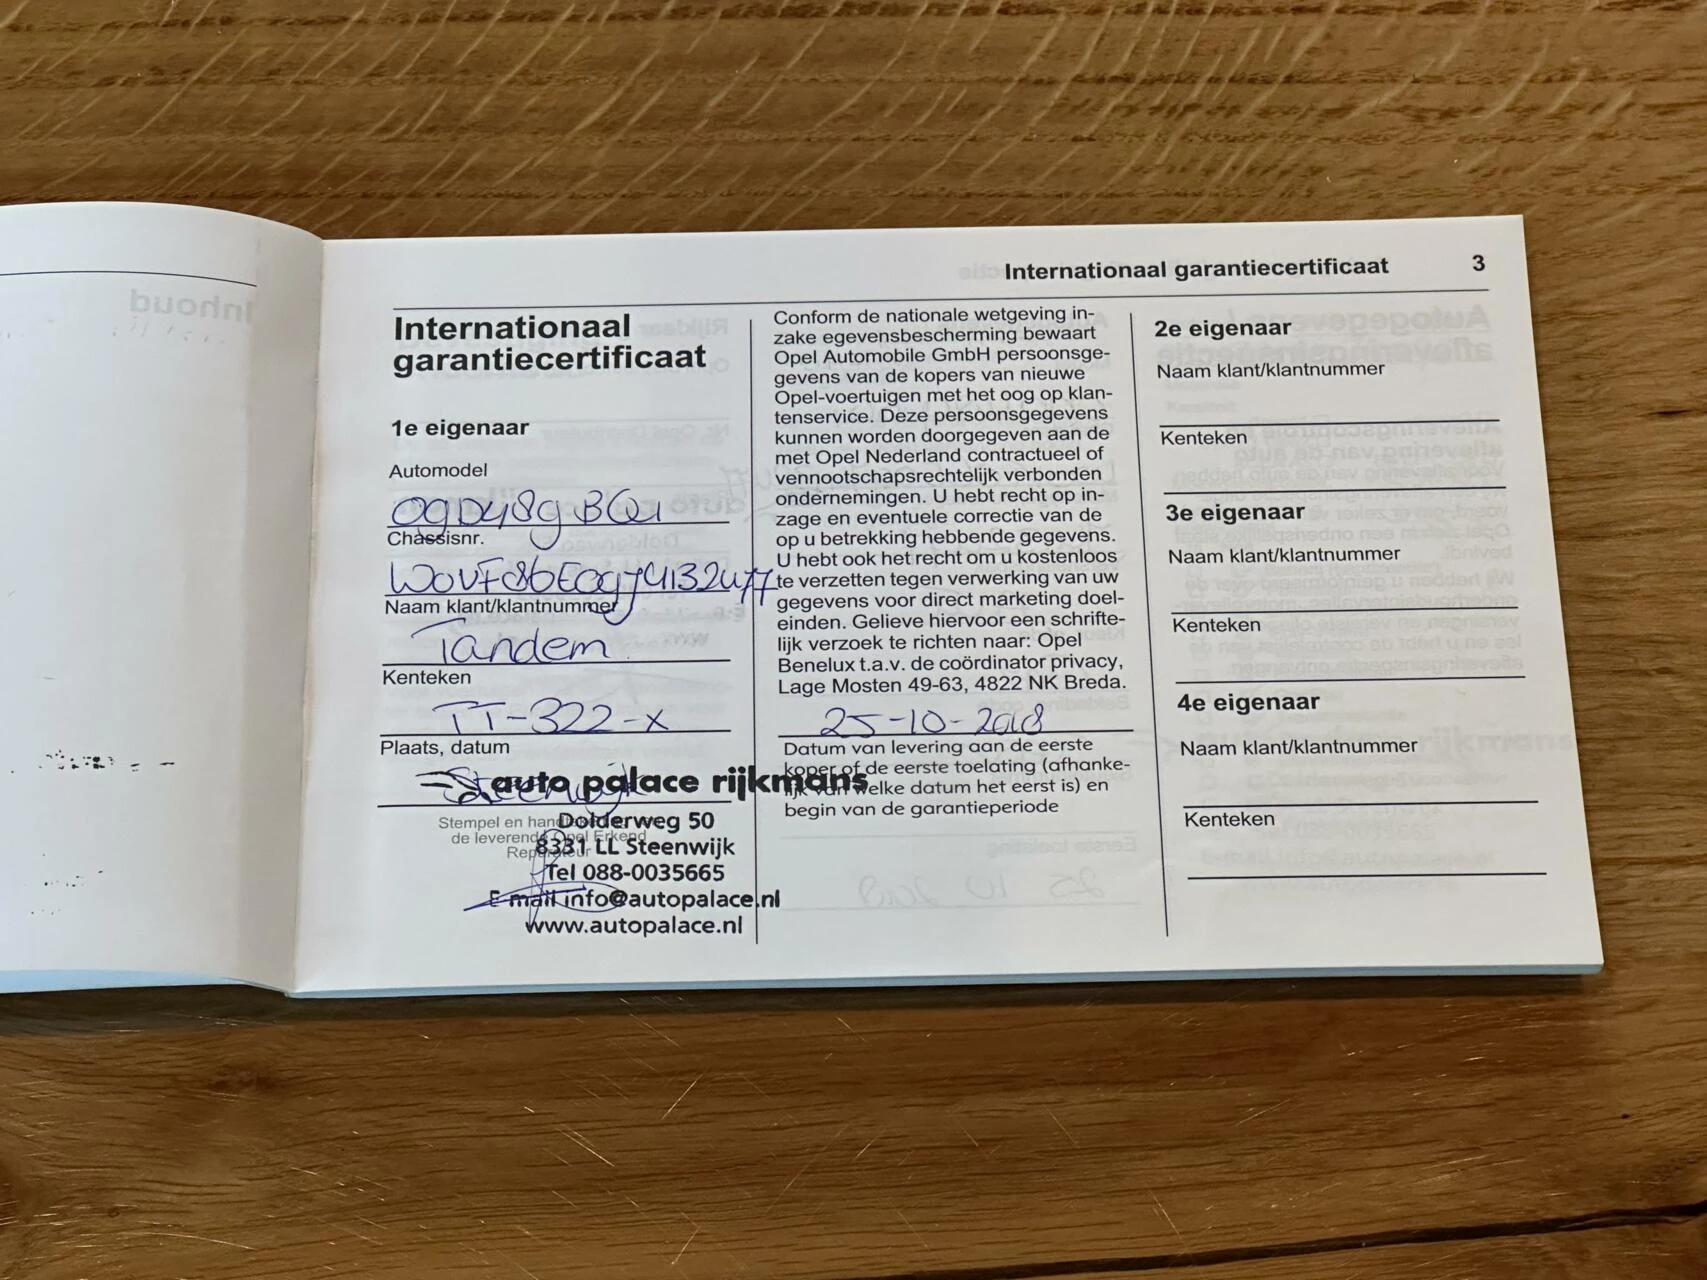 Inhoud
Internationaal garantiecertificaat 3
Internationaal
garantiecertificaat
1e eigenaar
Automodel
Chassisnr.
Naam klant/klantnummer
Tandem
Kenteken
TT-322-X
Plaats, datum
Steenwijk
auto palace rijkmans
Stempel en
de leverende Opel Erkend
Reparateur
Dolderweg 50
8331 LL Steenwijk
Tel 088-0035665
E-mail info@autopalace.nl
www.autopalace.nl
Conform de nationale wetgeving in-
zake egevensbescherming bewaart
Opel Automobile GmbH persoonsge-
gevens van de kopers van nieuwe
Opel-voertuigen met het oog op klan-
tenservice. Deze persoonsgegevens
kunnen worden doorgegeven aan de
met Opel Nederland contractueel of
vennootschapsrechtelijk verbonden
ondernemingen. U hebt recht op in-
zage en eventuele correctie van de
op u betrekking hebbende gegevens.
U hebt ook het recht om u kosteloos
te verzetten tegen verwerking van uw
gegevens voor direct marketing doel-
einden. Gelieve hiervoor een schrifte-
lijk verzoek te richten naar: Opel
Benelux t.a.v. de coördinator privacy,
Lage Mosten 49-63, 4822 NK Breda.
25-10-2018
Datum van levering aan de eerste
koper of de eerste toelating (afhanke-
lijk van welke datum het eerst is) en
begin van de garantieperiode
2e eigenaar
Naam klant/klantnummer
Kenteken
3e eigenaar
Naam klant/klantnummer
Kenteken
4e eigenaar
Naam klant/klantnummer
Kenteken